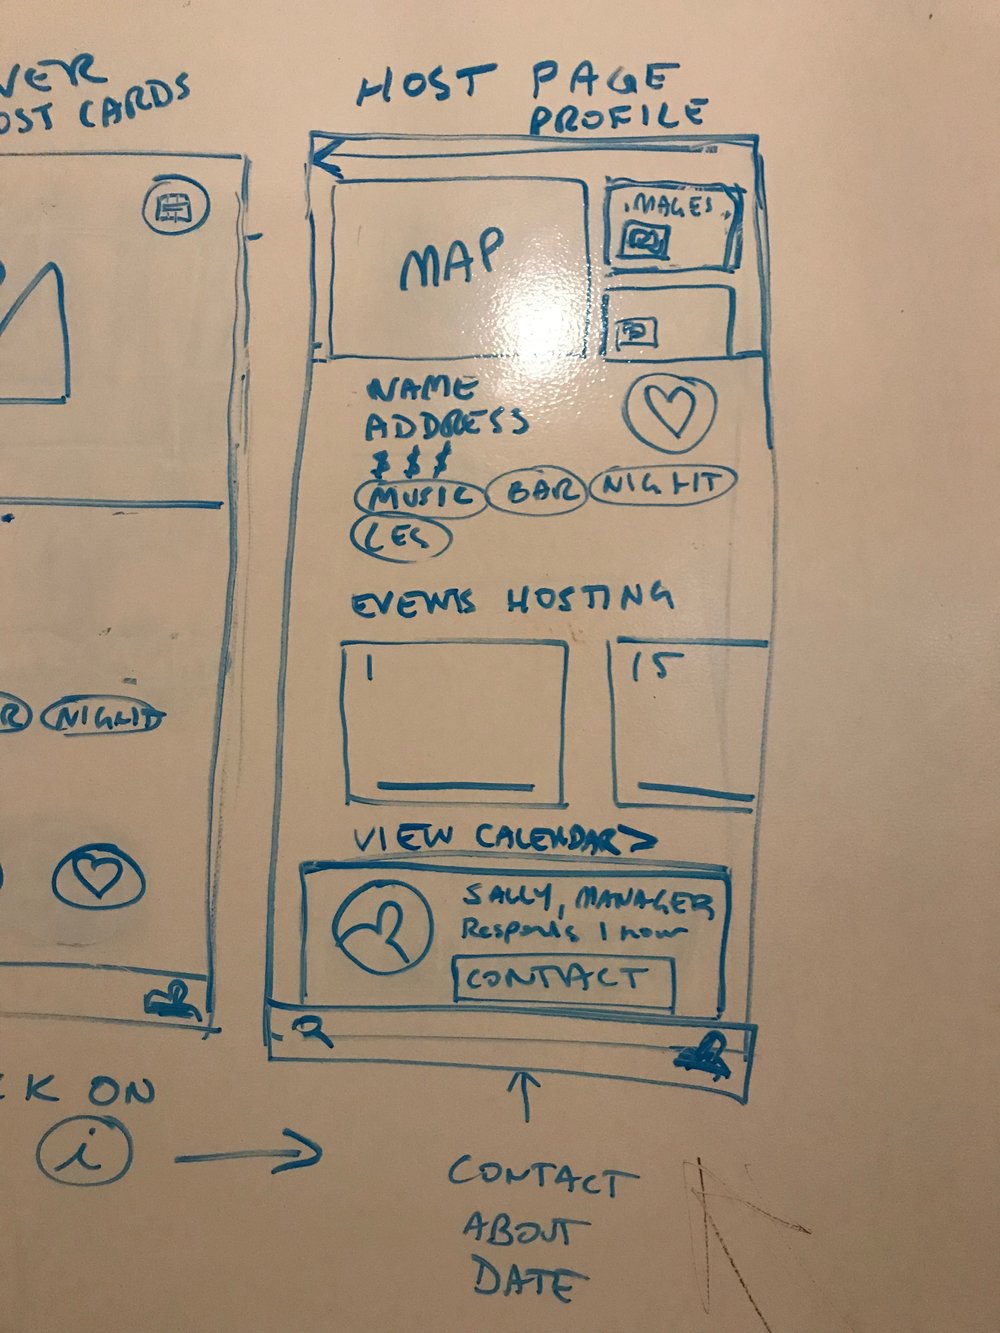 VER
OST CARDS
R NIGHT
CK ON
i
HOST PAGE
PROFILE
MAP
IMAGES
NAME
ADDRESS
$ $ $
MUSIC BAR NIGHT
LES
EVENTS HOSTING
1 15
VIEW CALENDAR >
SALLY, MANAGER
Responds 1 hour
CONTACT
CONTACT
ABOUT
DATE